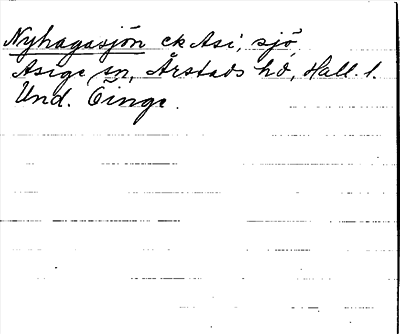 Nyhagasjön ek Asi, sjö,
Asige sn, Årstads hd, Hall. l.
Und. Öinge.